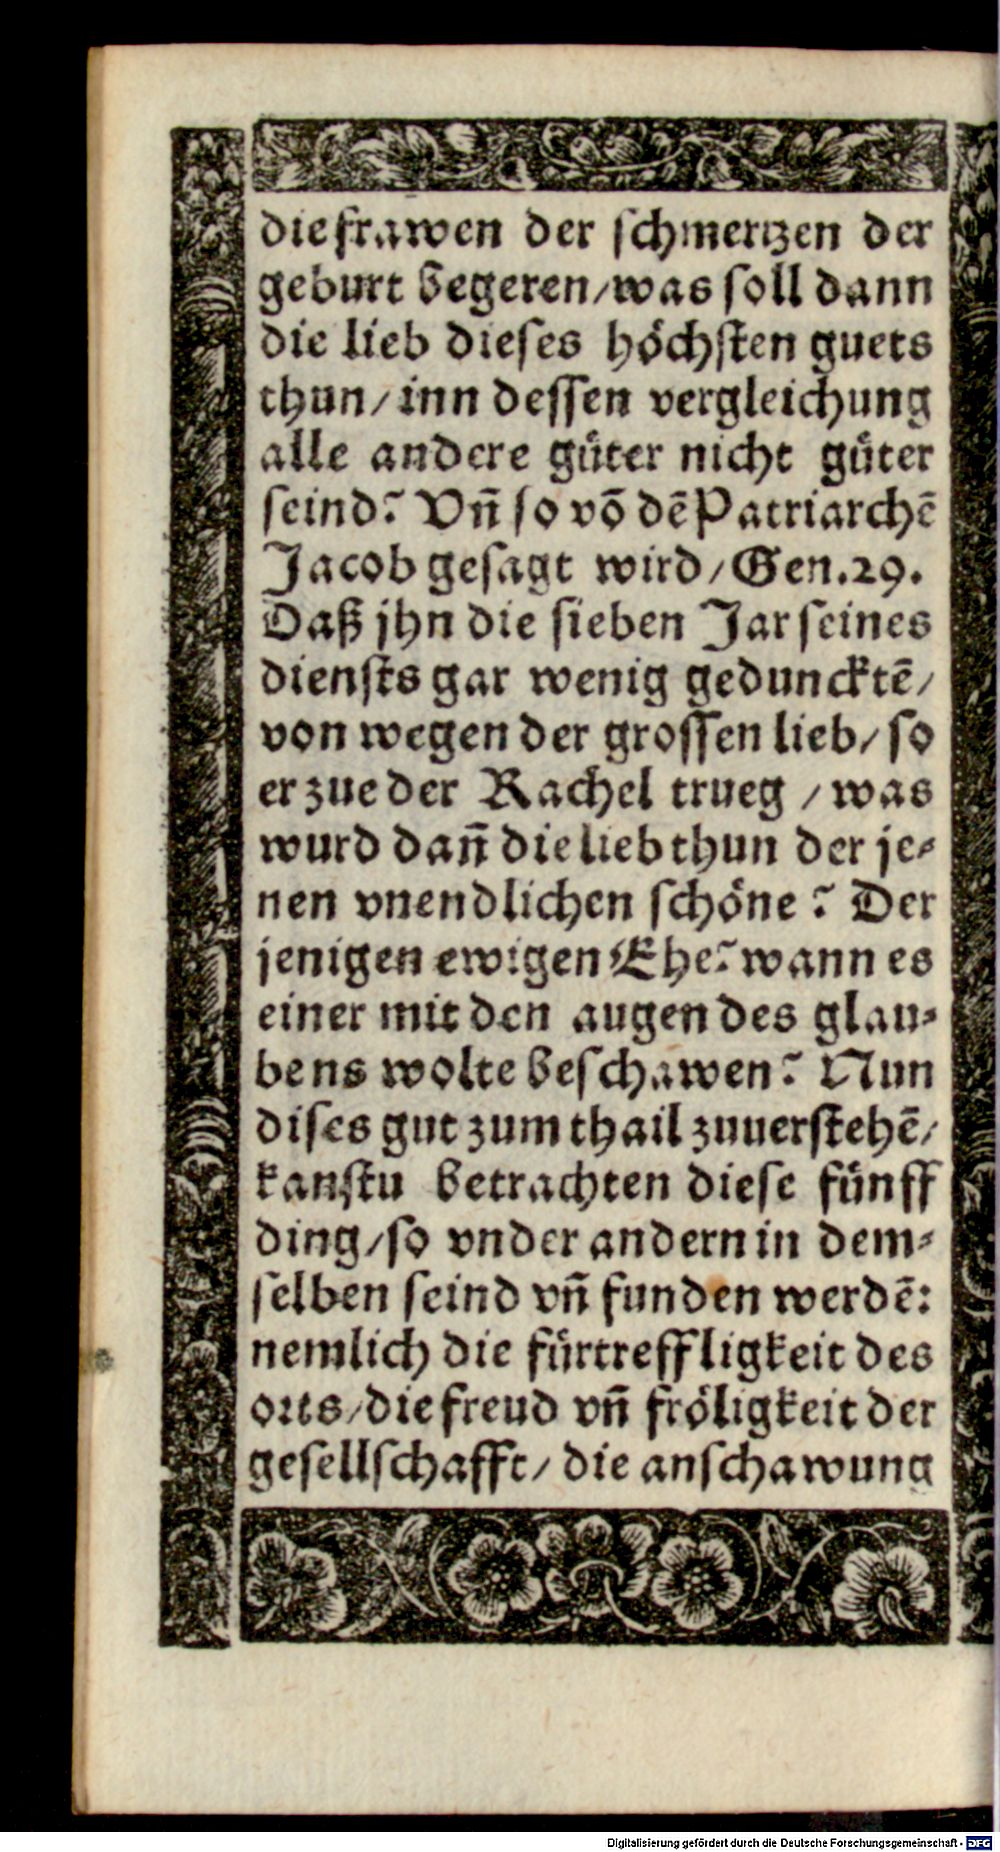 die frawen der schmertzen der
geburt begeren/was soll dann
die lieb dieses höchsten guets
thun/inn dessen vergleichung
alle andere güter nicht güter
seind? Vñ so võ dẽ Patriarchẽ
Jacob gesagt wird/Gen.29.
Daß jhn die sieben Jar seines
diensts gar wenig geduncktẽ/
von wegen der grossen lieb/so
er zue der Rachel trueg /was
wurd dañ die lieb thun der je-
nen vnendlichen schöne? Der
jenigen ewigen Ehe? wann es
einer mit den augen des glau-
bens wolte beschawen? Nun
dises gut zum thail zuuerstehẽ/
kanstu betrachten diese fünff
ding/so vnder andern in dem-
selben seind vñ funden werdẽ:
nemlich die fürtreffligkeit des
orts/die freud vñ fröligkeit der
gesellschafft/ die anschawung
Digitalisierung gefördert durch die Deutsche Forschungsgemeinschaft - DFG